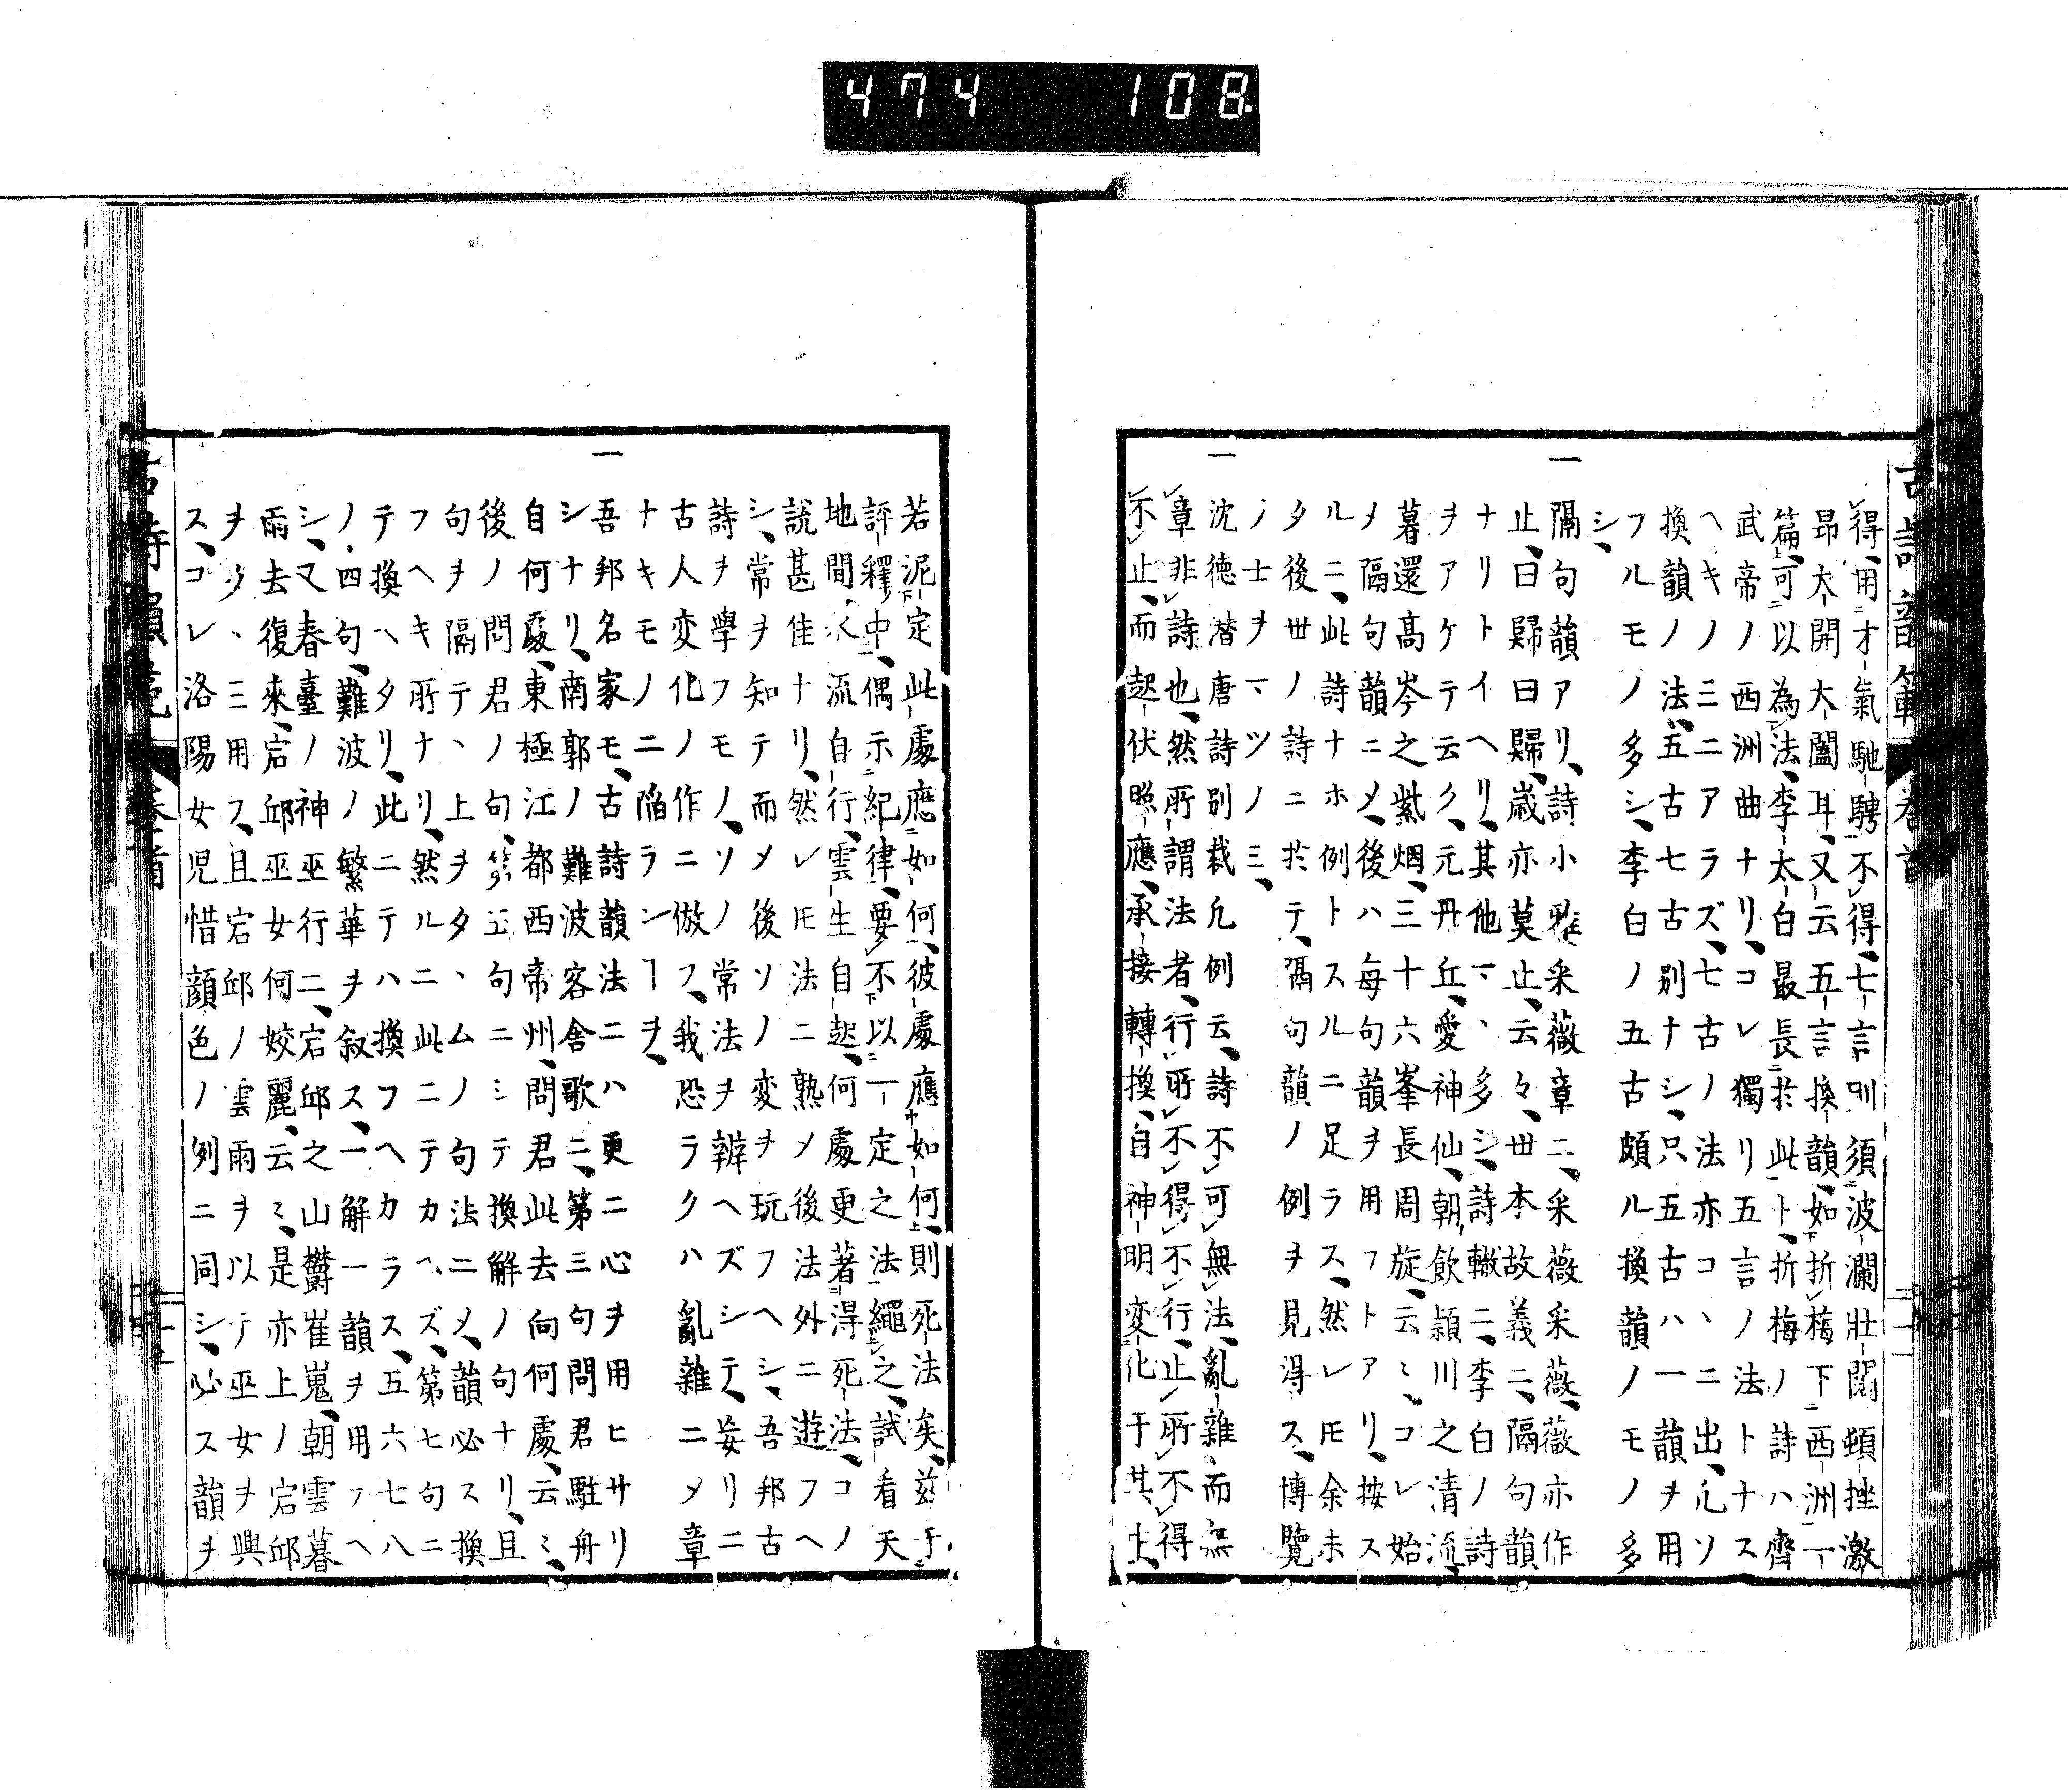 474 108
得、用才氣馳騁不得、七言則須波瀾壯闊頓挫激
昂大開大闔耳、又云五言換韻、如折梅下西洲一
篇、可以為法、李太白最長於此ト、折梅ノ詩ハ齊
武帝ノ西洲曲ナリ、コレ獨リ五言ノ法トナス
ヘキノミニアラズ、七古ノ法亦コヽニ出、凡ソ
換韻ノ法、五古七古別ナシ、只五古ハ一韻ヲ用
フルモノ多シ、李白ノ五古頗ル換韻ノモノ多
シ、
一隔句韻アリ、詩小雅采薇章ニ、采薇采薇、薇亦作
止、曰歸曰歸、歳亦莫止、云々、世本故義ニ、隔句韻
ナリトイヘリ、其他マヽ多シ、詩轍ニ、李白ノ詩
ヲアケテ云ク、元丹丘、愛神仙、朝飲潁川之清流、
暮還高岑之紫烟、三十六峯長周旋、云々、コレ始
メ隔句韻ニメ、後ハ毎句韻ヲ用フトアリ、按ス
ルニ、此詩ナホ例トスルニ足ラス、然レ𪜈余未
タ後世ノ詩ニ於テ、隔句韻ノ例ヲ見得ス、博覽
ノ士ヲマツノミ、
一沈德潛唐詩別裁凡例云、詩不可無法、亂雜而無
章非詩也、然所謂法者、行所不得不行、止所不得
不止、而起伏照應、承接轉換、自神明変化于其中、
若泥定此處應如何、彼處應如何、則死法矣、玆于
評釋中、偶示紀律、要不以一定之法繩之、試看天
地間、水流自行、雲生自起、何處更著得死法、コノ
説甚佳ナリ、然レ𪜈法ニ熟メ後法外ニ遊フヘ
シ、常ヲ知テ而メ後ソノ変ヲ玩フヘシ、吾邦古
詩ヲ學フモノ、ソノ常法ヲ辨ヘズシテ、妄リニ
古人変化ノ作ニ倣フ、我恐ラクハ亂雜ニメ章
ナキモノニ陥ラン𪜀ヲ、
一吾邦名家モ、古詩韻法ニハ更ニ心ヲ用ヒサリ
シナリ、南郭ノ難波客舎歌ニ、第三句問君駐舟
自何處、東極江都西帝州、問君此去向何處、云々、
後ノ問君ノ句、第五句ニシテ換解ノ句ナリ、且
句ヲ隔テヽ上ヲタヽムノ句法ニメ、韻必ス換
フヘキ所ナリ、然ルニ此ニテカヘズ、第七句ニ
テ換ヘタリ、此ニテハ換フヘカラス、五六七八
ノ四句、難波ノ繁華ヲ叙ス、一解一韻ヲ用フヘ
シ、又春臺ノ神巫行ニ、宕邱之山欝崔嵬、朝雲暮
雨去復來、宕邱巫女何姣麗、云々、是亦上ノ宕邱
ヲタヽミ用フ、且宕邱ノ雲雨ヲ以テ巫女ヲ興
ス、コレ洛陽女児惜顔色ノ例ニ同シ、必ス韻ヲ